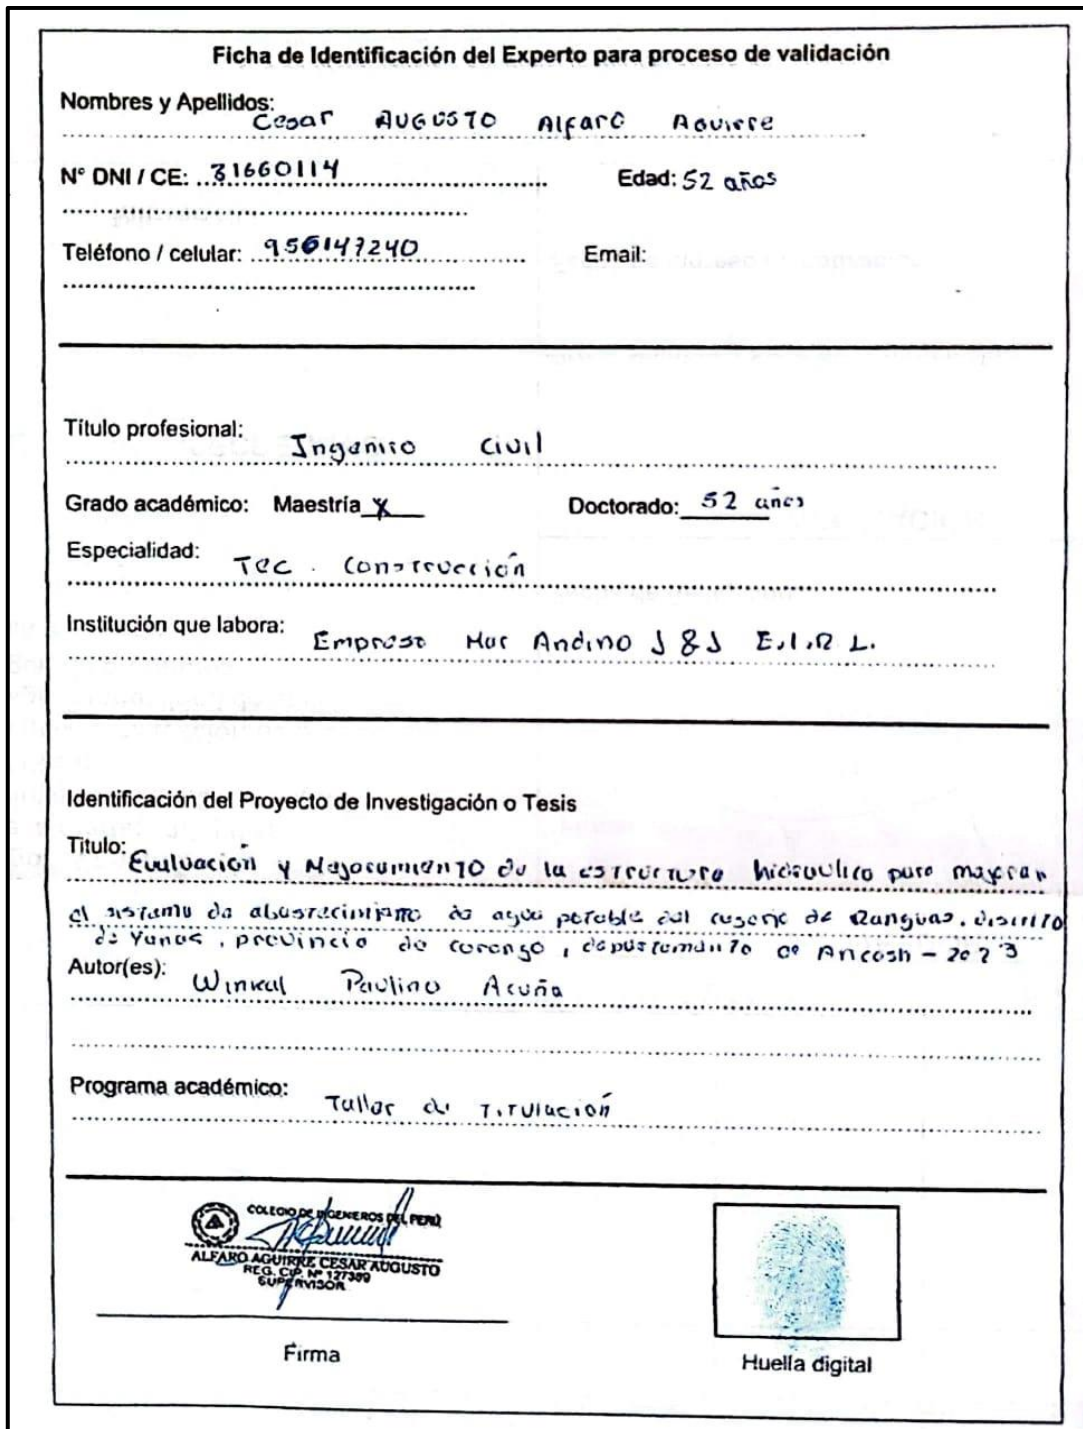 Ficha de Identificación del Experto para proceso de validación
Nombres y Apellidos: Cesar AUGUSTO Alfaro Aguirre
N° DNI / CE: 31660114 Edad: 52 años
Teléfono / celular: 956147240 Email:
Título profesional: Ingeniro Civil
Grado académico: Maestría X Doctorado: 52 años
Especialidad: Tec. Construcción
Institución que labora: Empresa Mar Andino J & J E.I.R.L.
Identificación del Proyecto de Investigación o Tesis
Titulo: Evaluación y Mejoramiento de la estructura hidraulica para mejorar
el sistema de abastecimiento de agua potable del caserio de Quanguas, distrito
de Yanac, provincia de corongo, departamento de Ancash - 2023
Autor(es): Paulino Acuña
Programa académico: Taller de Titulación
COLEGIO DE INGENIEROS DEL PERÚ
ALFARO AGUIRRE CESAR AUGUSTO
REG. CIP. N° 127389
SUPERVISOR
Firma
Huella digital